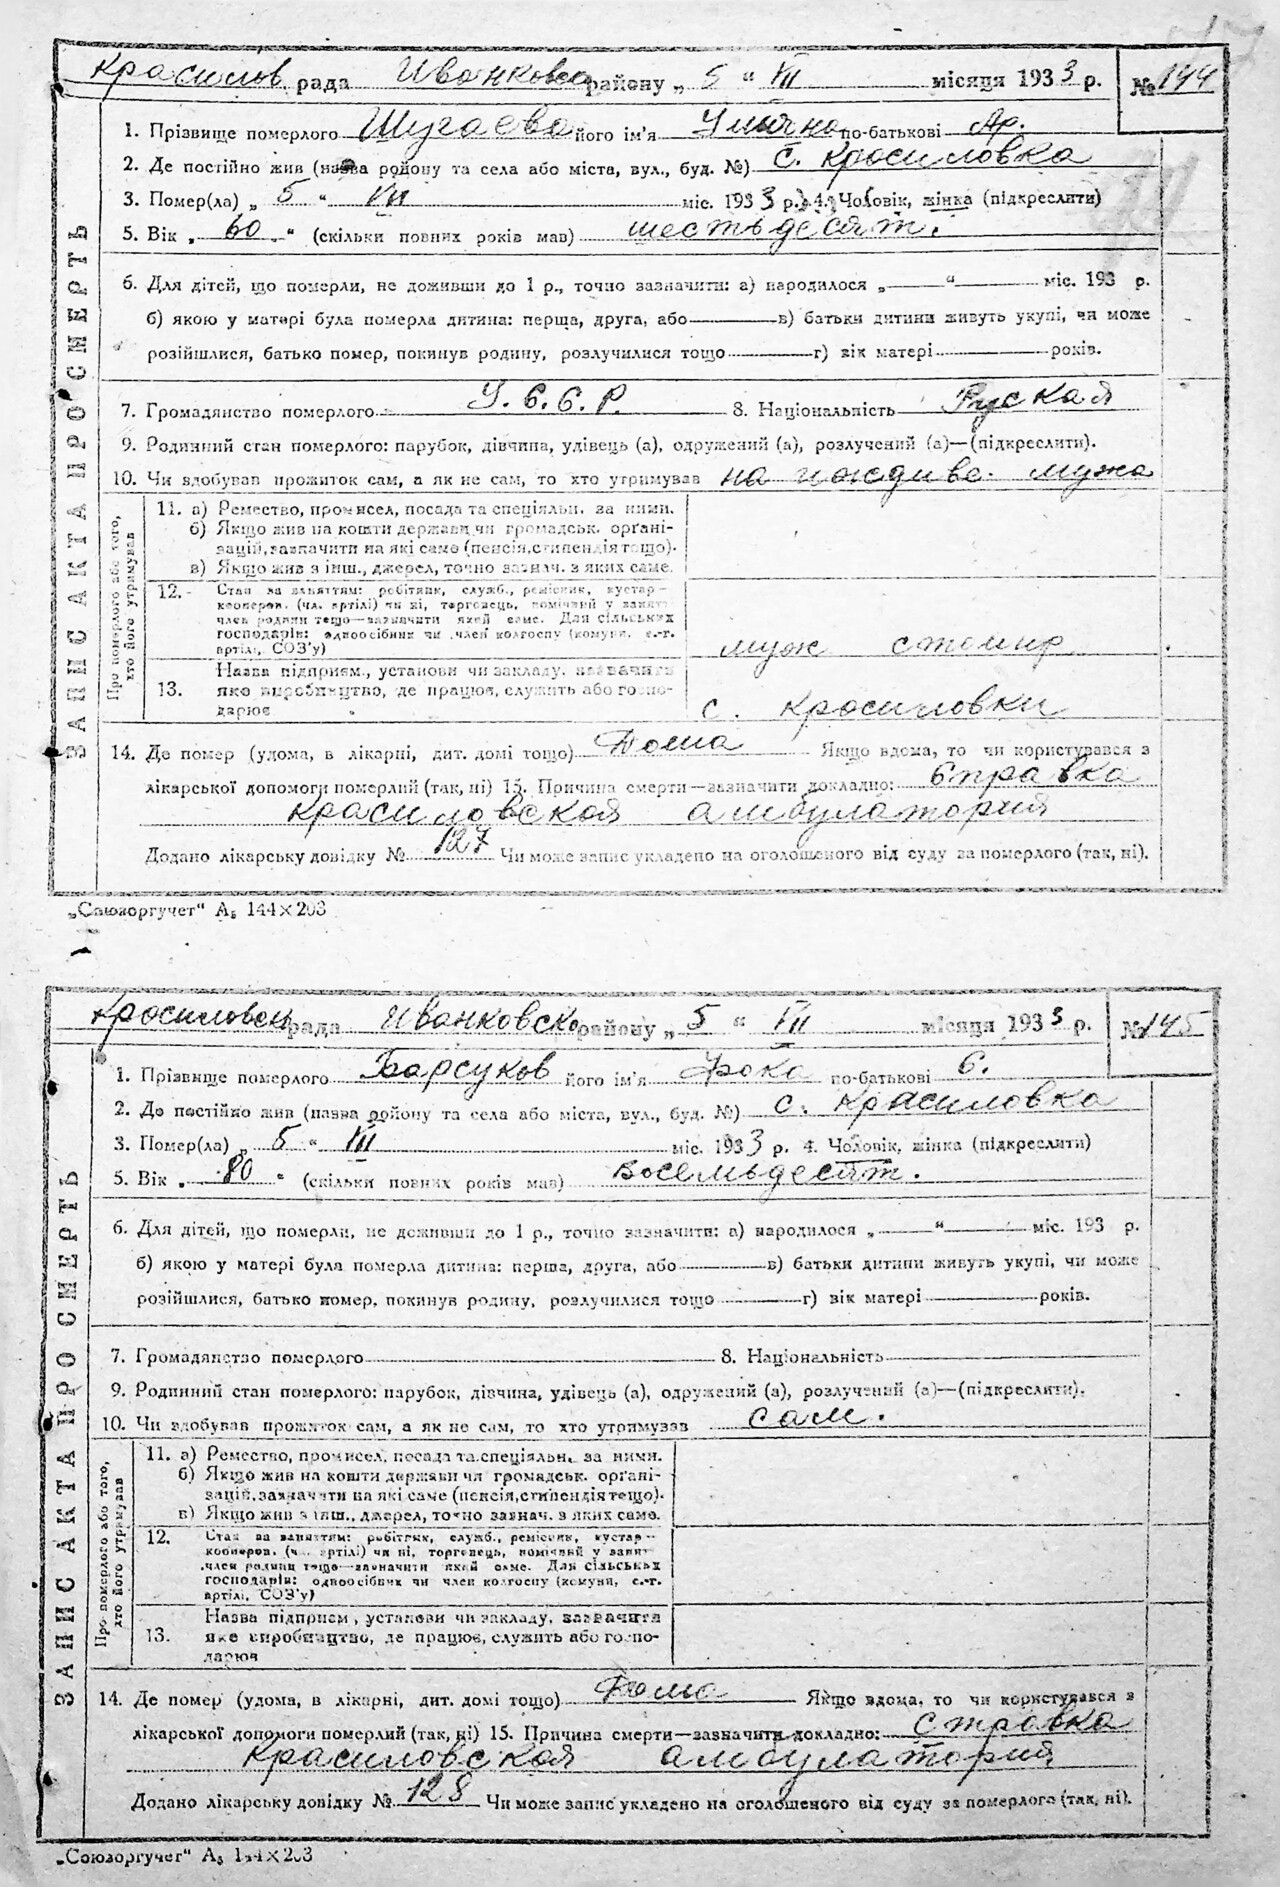 Красилов рада Иванковск району „ 5 “ VII місяця 1933 р. № 144
1. Прізвище померлого Шугаева його ім'я по-батькові Ар.
2. Де постійно жив (назва району та села або міста, вул., буд. №) с. Красиловка
3. Помер(ла) „ 5 “ VII міс. 1933 р. 4. Чоловік, жінка (підкреслити)
5. Вік „ 60 “ (скільки повних років мав) шестьдесят.
6. Для дітей, що померли, не доживши до 1 р., точно зазначити: а) народилося „ “ міс. 193 р.
б) якою у матері була померла дитина: перша, друга, або в) батьки дитини живуть укупі, чи може
розійшлися, батько помер, покинув родину, розлучилися тощо г) вік матері років.
7. Громадянство померлого У.С.С.Р. 8. Національність Руская
9. Родинний стан померлого: парубок, дівчина, удівець (а), одружений (а), розлучений (а)—(підкреслити).
10. Чи здобував прожиток сам, а як не сам, то хто утримував на иждиве. мужа
ЗАПИС АКТА ПРО СМЕРТЬ
Про померлого або того, хто його утримував
11. а) Ремество, промисел, посада та спеціяльн. за ними.
б) Якщо жив на кошти держави чи громадськ. органі-
зацій, зазначити на які саме (пенсія, стипендія тощо).
в) Якщо жив з інш., джерел, точно зазнач. з яких саме.
12. Стан за заняттям: робітник, служб., ремісник, кустар—
кооперов. (чл. артілі) чи ні, торговець, помічний у занят.
член родини тощо—зазначити який саме. Для сільських
господарів: одноосібник чи член колгоспу (комуни, с.-г.
артілі, СОЗ'у) муж столяр
13. Назва підприєм., установи чи закладу, зазначити
яке виробництво, де працює, служить або госпо-
дарює с. Красиловки
14. Де помер (удома, в лікарні, дит. домі тощо) Дома Якщо вдома, то чи користувався з
лікарської допомоги померлий (так, ні) 15. Причина смерти—зазначити докладно: Справка
Красиловской амбулатории
Додано лікарську довідку № 127 Чи може запис укладено на оголошеного від суду за померлого (так, ні).
„Союзоргучет“ А₅ 144×203
Красиловск рада Иванковско району „ 5 “ VII місяця 1933 р. № 145
1. Прізвище померлого Барсуков його ім'я Фока по-батькові С.
2. Де постійно жив (назва району та села або міста, вул., буд. №) с. Красиловка
3. Помер(ла) „ 5 “ VII міс. 1933 р. 4. Чоловік, жінка (підкреслити)
5. Вік „ 80 “ (скільки повних років мав) восемьдесят.
6. Для дітей, що померли, не доживши до 1 р., точно зазначити: а) народилося „ “ міс. 193 р.
б) якою у матері була померла дитина: перша, друга, або в) батьки дитини живуть укупі, чи може
розійшлися, батько помер, покинув родину, розлучилися тощо г) вік матері років.
7. Громадянство померлого 8. Національність
9. Родинний стан померлого: парубок, дівчина, удівець (а), одружений (а), розлучений (а)—(підкреслити).
10. Чи здобував прожиток сам, а як не сам, то хто утримував сам.
ЗАПИС АКТА ПРО СМЕРТЬ
Про померлого або того, хто його утримував
11. а) Ремество, промисел, посада та спеціяльн. за ними.
б) Якщо жив на кошти держави чи громадськ. органі-
зацій, зазначити на які саме (пенсія, стипендія тощо).
в) Якщо жив з інш., джерел, точно зазнач. з яких само.
12. Стан за заняттям: робітник, служб., ремісник, кустар—
кооперов. (чл. артілі) чи ні, торговець, помічний у занят.
член родини тощо—зазначити який саме. Для сільських
господарів: одноосібник чи член колгоспу (комуни, с.-г.
артілі, СОЗ'у)
13. Назва підприєм., установи чи закладу, зазначити
яке виробництво, де працює, служить або госпо-
дарює
14. Де помер (удома, в лікарні, дит. домі тощо) Дома Якщо вдома, то чи користувався з
лікарської допомоги померлий (так, ні) 15. Причина смерти—зазначити докладно: справка
Красиловской амбулатории
Додано лікарську довідку № 128 Чи може запис укладено на оголошеного від суду за померлого (так, ні).
„Союзоргучет“ А₅ 144×203